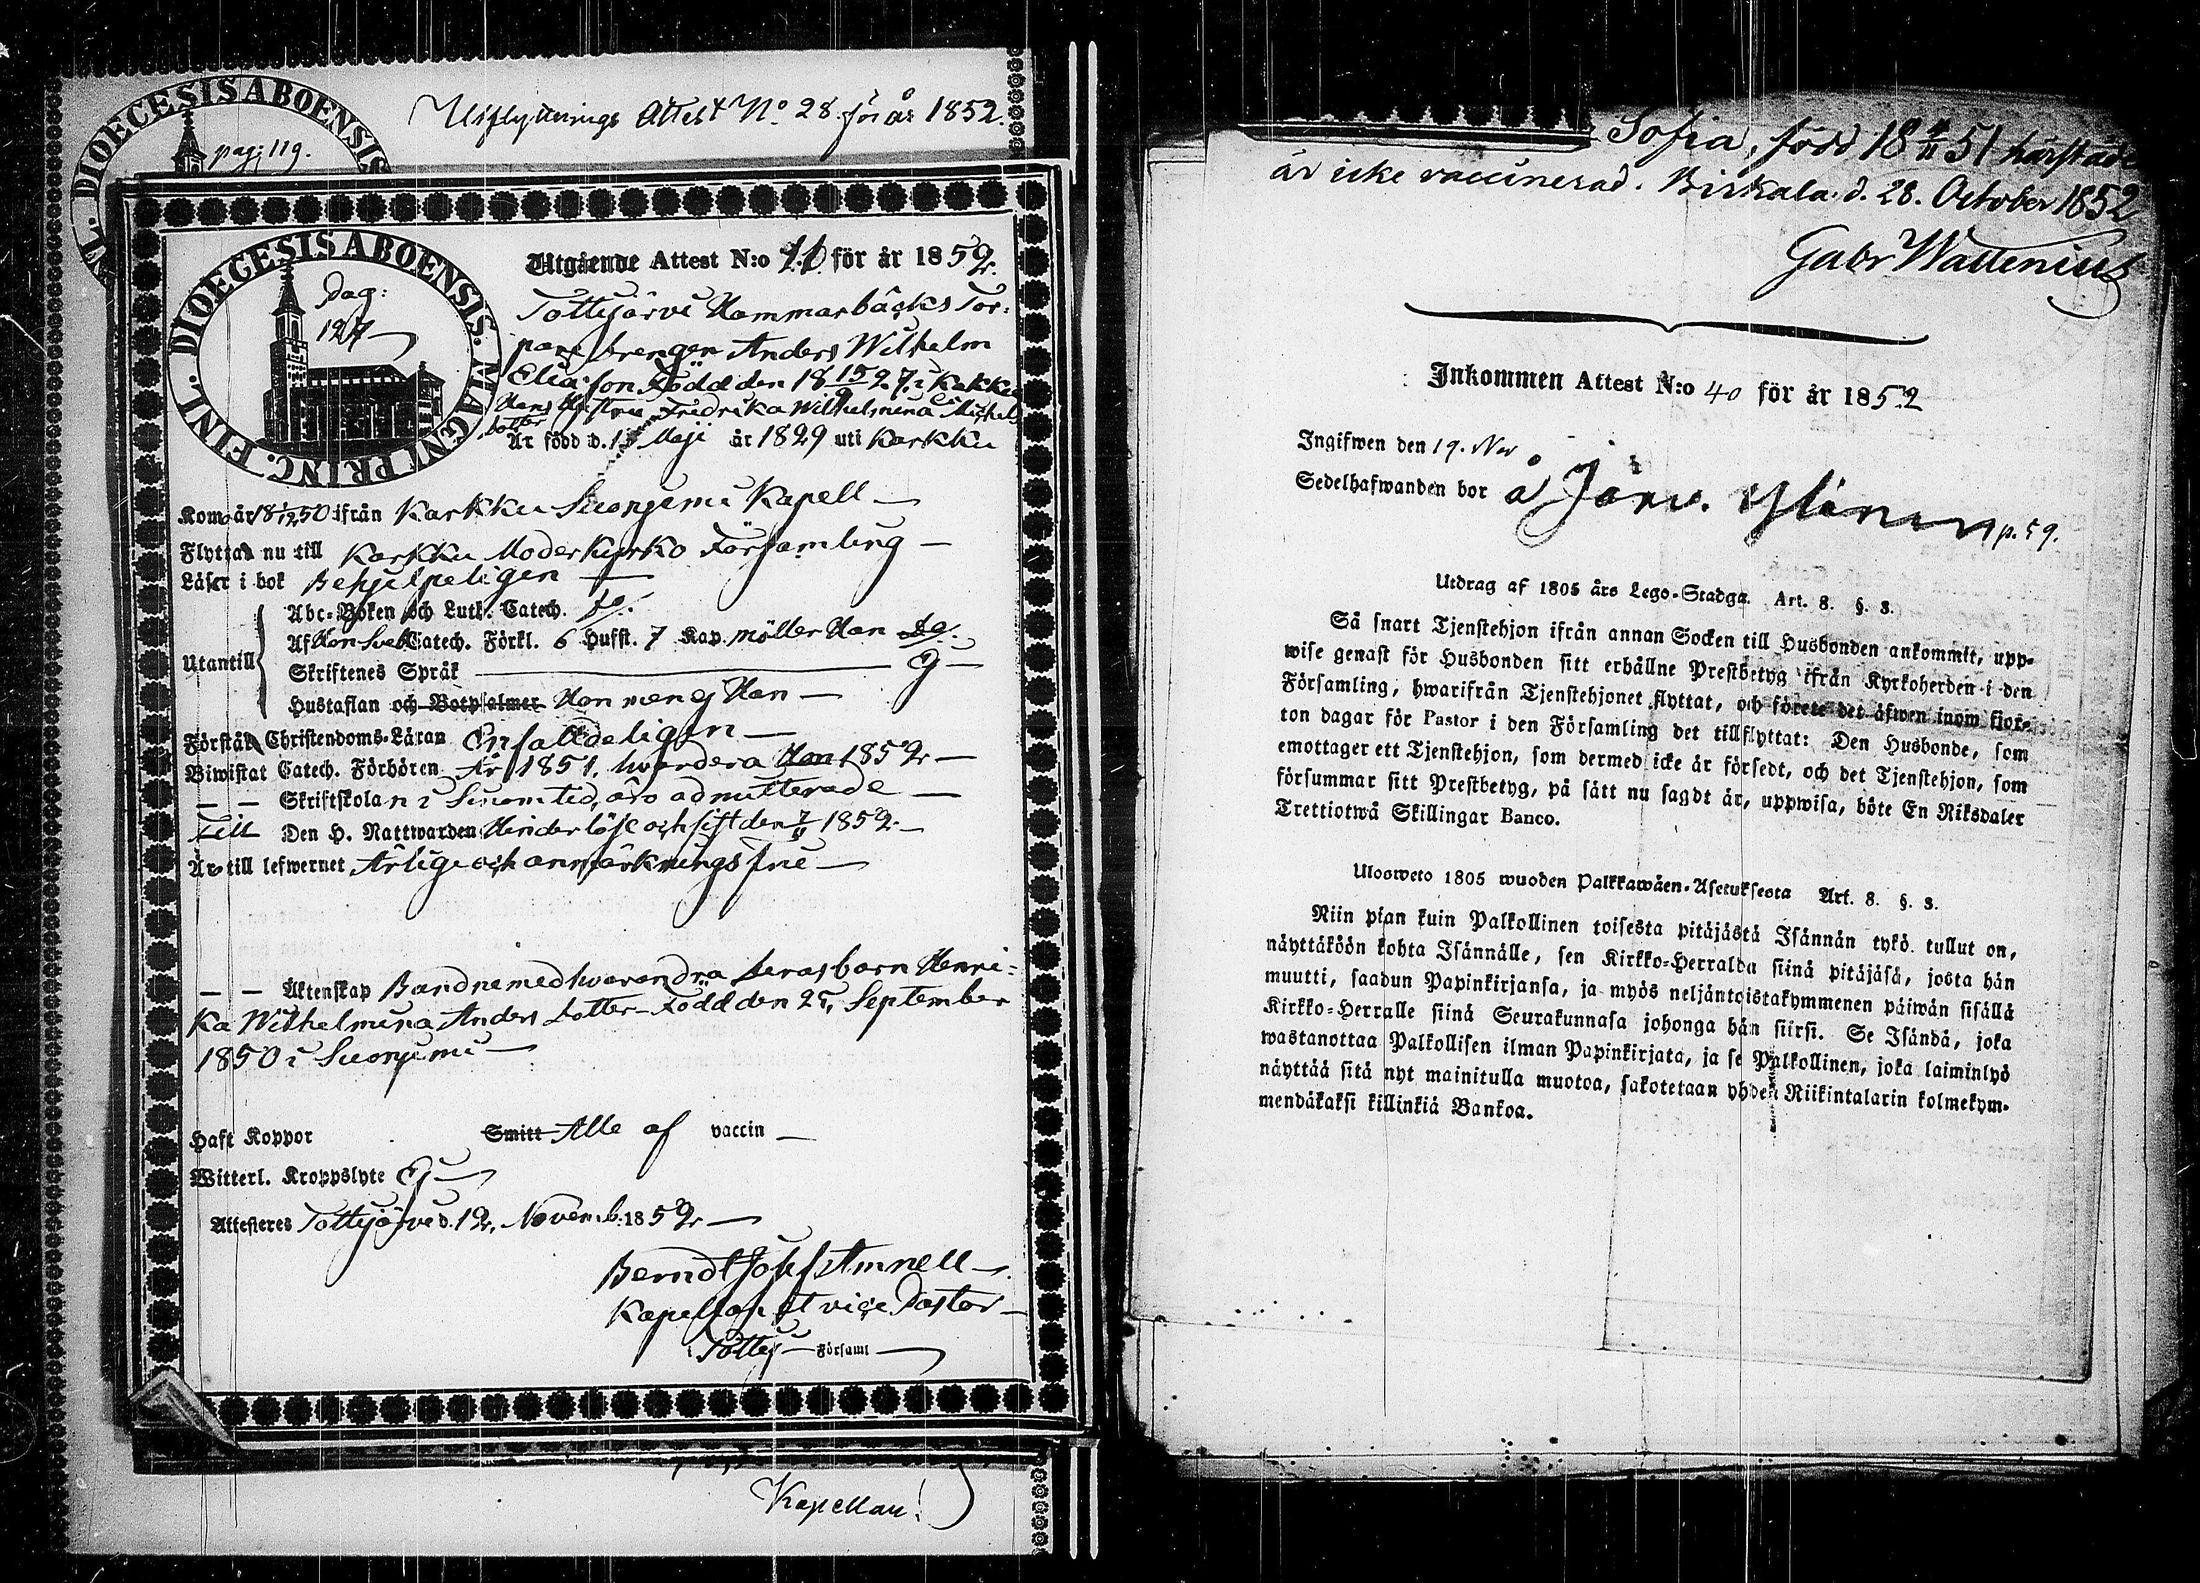 Utflyttnings Attest No. 28 för år 1852.
DIOECESIS ABOENSIS
pag: 119.
DIOECESIS ABOENSIS. MAGNI PRINC. FINL.
Pag:
127
Utgående Attest N:o 40 för år 1852.
Tottijärvi Hammarbacks Tor-
pare drengen Anders Wilhelm
Eliasson Född den 18 15/9 27. i Karkku
Hans Hustru Fredrika Wilhelmina Michels
dotter
Är född d. 15 Maji år 1829 uti Karkku
Kom år 18 /12 50 ifrån Karkku Suoniemi Kapell
Flytta nu till Karkku Moderkyrko Församling
Läser i bok Behjelpeligen
Utantill
Abc-Boken och Luth. Catech. do.
Af Hon Sveb. Catech. Förkl. 6 Hufst. 7 Kap. möller Han do.
Skriftenes Språk Ej
Hustaflan och Botpsalmer Hon men ej Han
Förstå Christendoms-Läran Enfaldeligen
Biwistat Catech. Förhören År 1851. hvardera Han 1852
Skriftskolan i Suoniemi, äro admitterade
Till Den H. Nattwarden Hinderlöse och sist den 7/11 1852.
Är till lefwernet Ärlige och anmärkningsfrie
Äktenskap Bandne med hvarandra deras barn Henri-
ka Wilhelmina Anders dotter Född den 25. September
1850 i Suoniemi
Haft Koppor Smitt Alle af vaccin
Witterl. Kroppslyte Ej
Attesteres Tottijärvi d. 12. Novemb. 1852
Berndt Josef Amnell
Kapellan et vice Pastor
i Tottij Församl
Kapellan.
Sofia, född 18 /11 51 härstädes
är icke vaccinerad. Birkala d. 28. October 1852
Gabr Wallenius
Inkommen Attest N:o 40 för år 1852
Ingifwen den 19. Nov
Sedelhafwanden bor å Jänv. p. 59.
Utdrag af 1805 års Lego-Stadga Art. 8. §. 3.
Så snart Tjenstehjon ifrån annan Socken till Husbonden ankommit, upp-
wise genast för Husbonden sitt erhållne Prestbetyg ifrån Kyrkoherden i den
Församling, hwarifrån Tjenstehjonet flyttat, och förete det äfwen inom fjor-
ton dagar för Pastor i den Församling det tillflyttat: Den Husbonde, som
emottager ett Tjenstehjon, som dermed icke är försedt, och det Tjenstehjon, som
försummar sitt Prestbetyg, på sätt nu sagdt är, uppwisa, böte En Riksdaler
Trettiotwå Skillingar Banco.
Ulosweto 1805 wuoden Palkkawäen-Asetuksesta Art. 8. §. 3.
Niin pian kuin Palkollinen toisesta pitäjästä Isännän tykö tullut on,
näyttäköön kohta Isännälle, sen Kirkko-Herralda siinä pitäjäsä, josta hän
muutti, saadun Papinkirjansa, ja myös neljäntoistakymmenen päiwän sisällä
Kirkko-Herralle siinä Seurakunnasa johonga hän siirsi. Se Isändä, joka
wastanottaa Palkollisen ilman Papinkirjata, ja se Palkollinen, joka laiminlyö
näyttää sitä nyt mainitulla muotoa, sakotetaan yhden Riikintalarin kolmekym-
mendäkaksi killinkiä Bankoa.